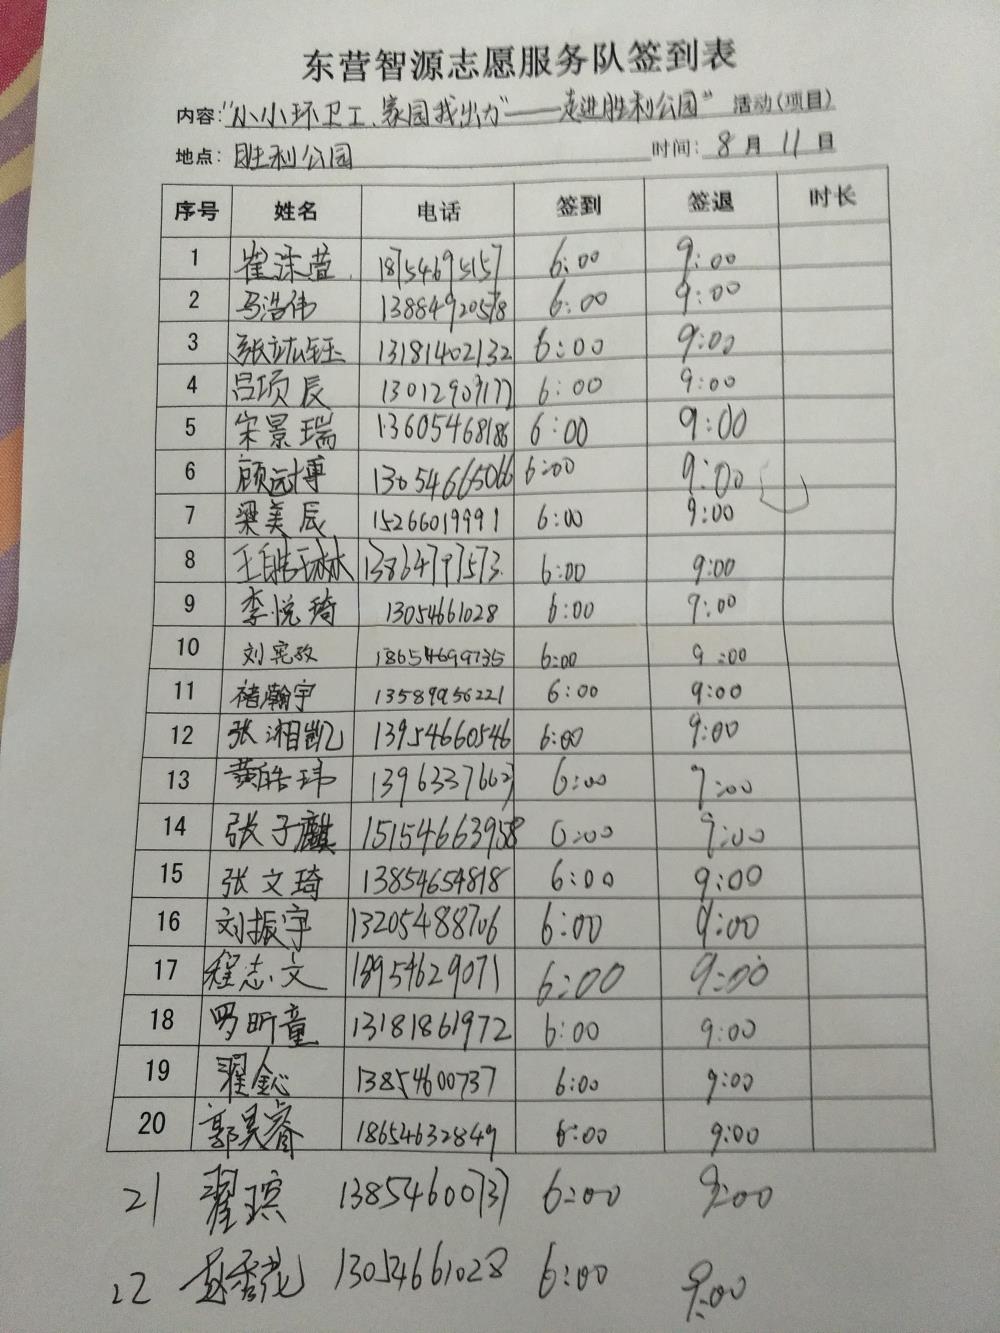 东营智源志愿服务队签到表
内容:“小小环卫工、家园我出力”——走进胜利公园” 活动(项目)
地点: 胜利公园 时间: 8 月 11 日
序号 姓名 电话 签到 签退 时长
1 崔沫萱 18754695157 6:00 9:00
2 马浩伟 13884920578 6:00 9:00
3 张竑钰 13181402132 6:00 9:00
4 吕顼辰 13012909177 6:00 9:00
5 宋景瑞 13605468186 6:00 9:00
6 顾远博 13054665066 6:00 9:00
7 梁美辰 15266019991 6:00 9:00
8 王皓琳 13864797573 6:00 9:00
9 李悦琦 13054661028 6:00 9:00
10 刘宪孜 18654699735 6:00 9:00
11 褚瀚宇 13589956221 6:00 9:00
12 张湘凯 13954660546 6:00 9:00
13 黄皓玮 13963376627 6:00 9:00
14 张子麒 15154663958 6:00 9:00
15 张文琦 13854654818 6:00 9:00
16 刘振宇 13205488706 6:00 9:00
17 程志文 18954629071 6:00 9:00
18 罗昕童 13181861972 6:00 9:00
19 翟鈊 13854600737 6:00 9:00
20 郭昊睿 18654632849 6:00 9:00
21 翟瑸 13854600737 6:00 9:00
22 赵秀花 13054661028 6:00 9:00